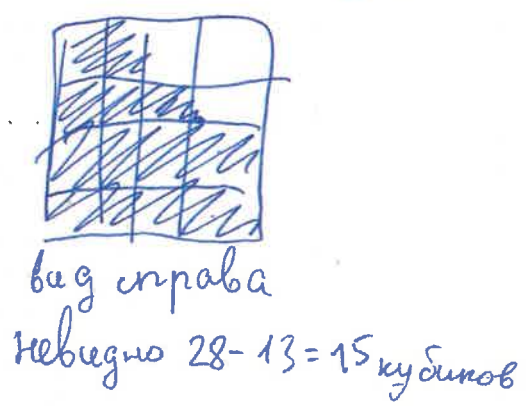 вид справа
невидно 28-13=15 кубиков